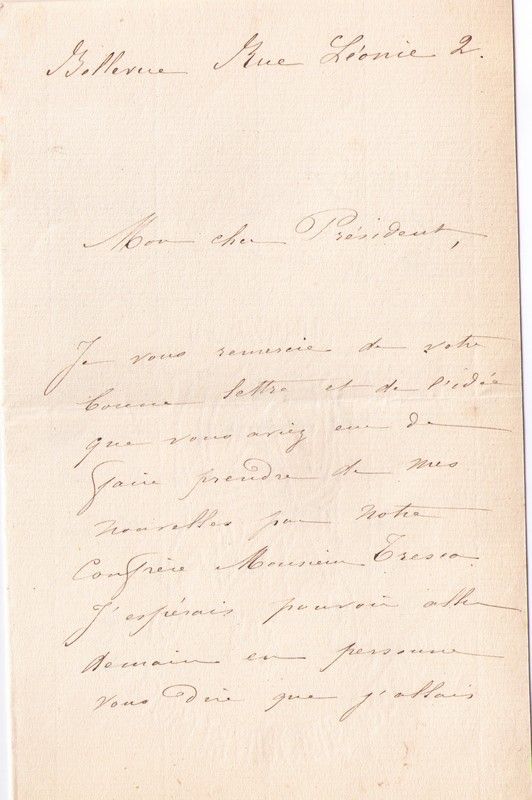 Bellevue Rue Léonie 2.
Mon cher Président,
Je vous remercie de votre
bonne lettre et de l'idée
que vous aviez eue de
faire prendre de mes
nouvelles par notre
Confrère Monsieur Tresca.
J'espérais pouvoir aller
demain en personne
vous dire que j'allais